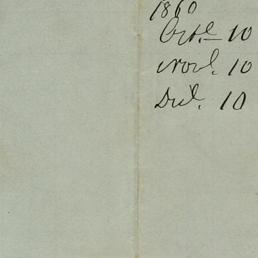 1860
Oct. 10
Nov. 10
Dec. 10